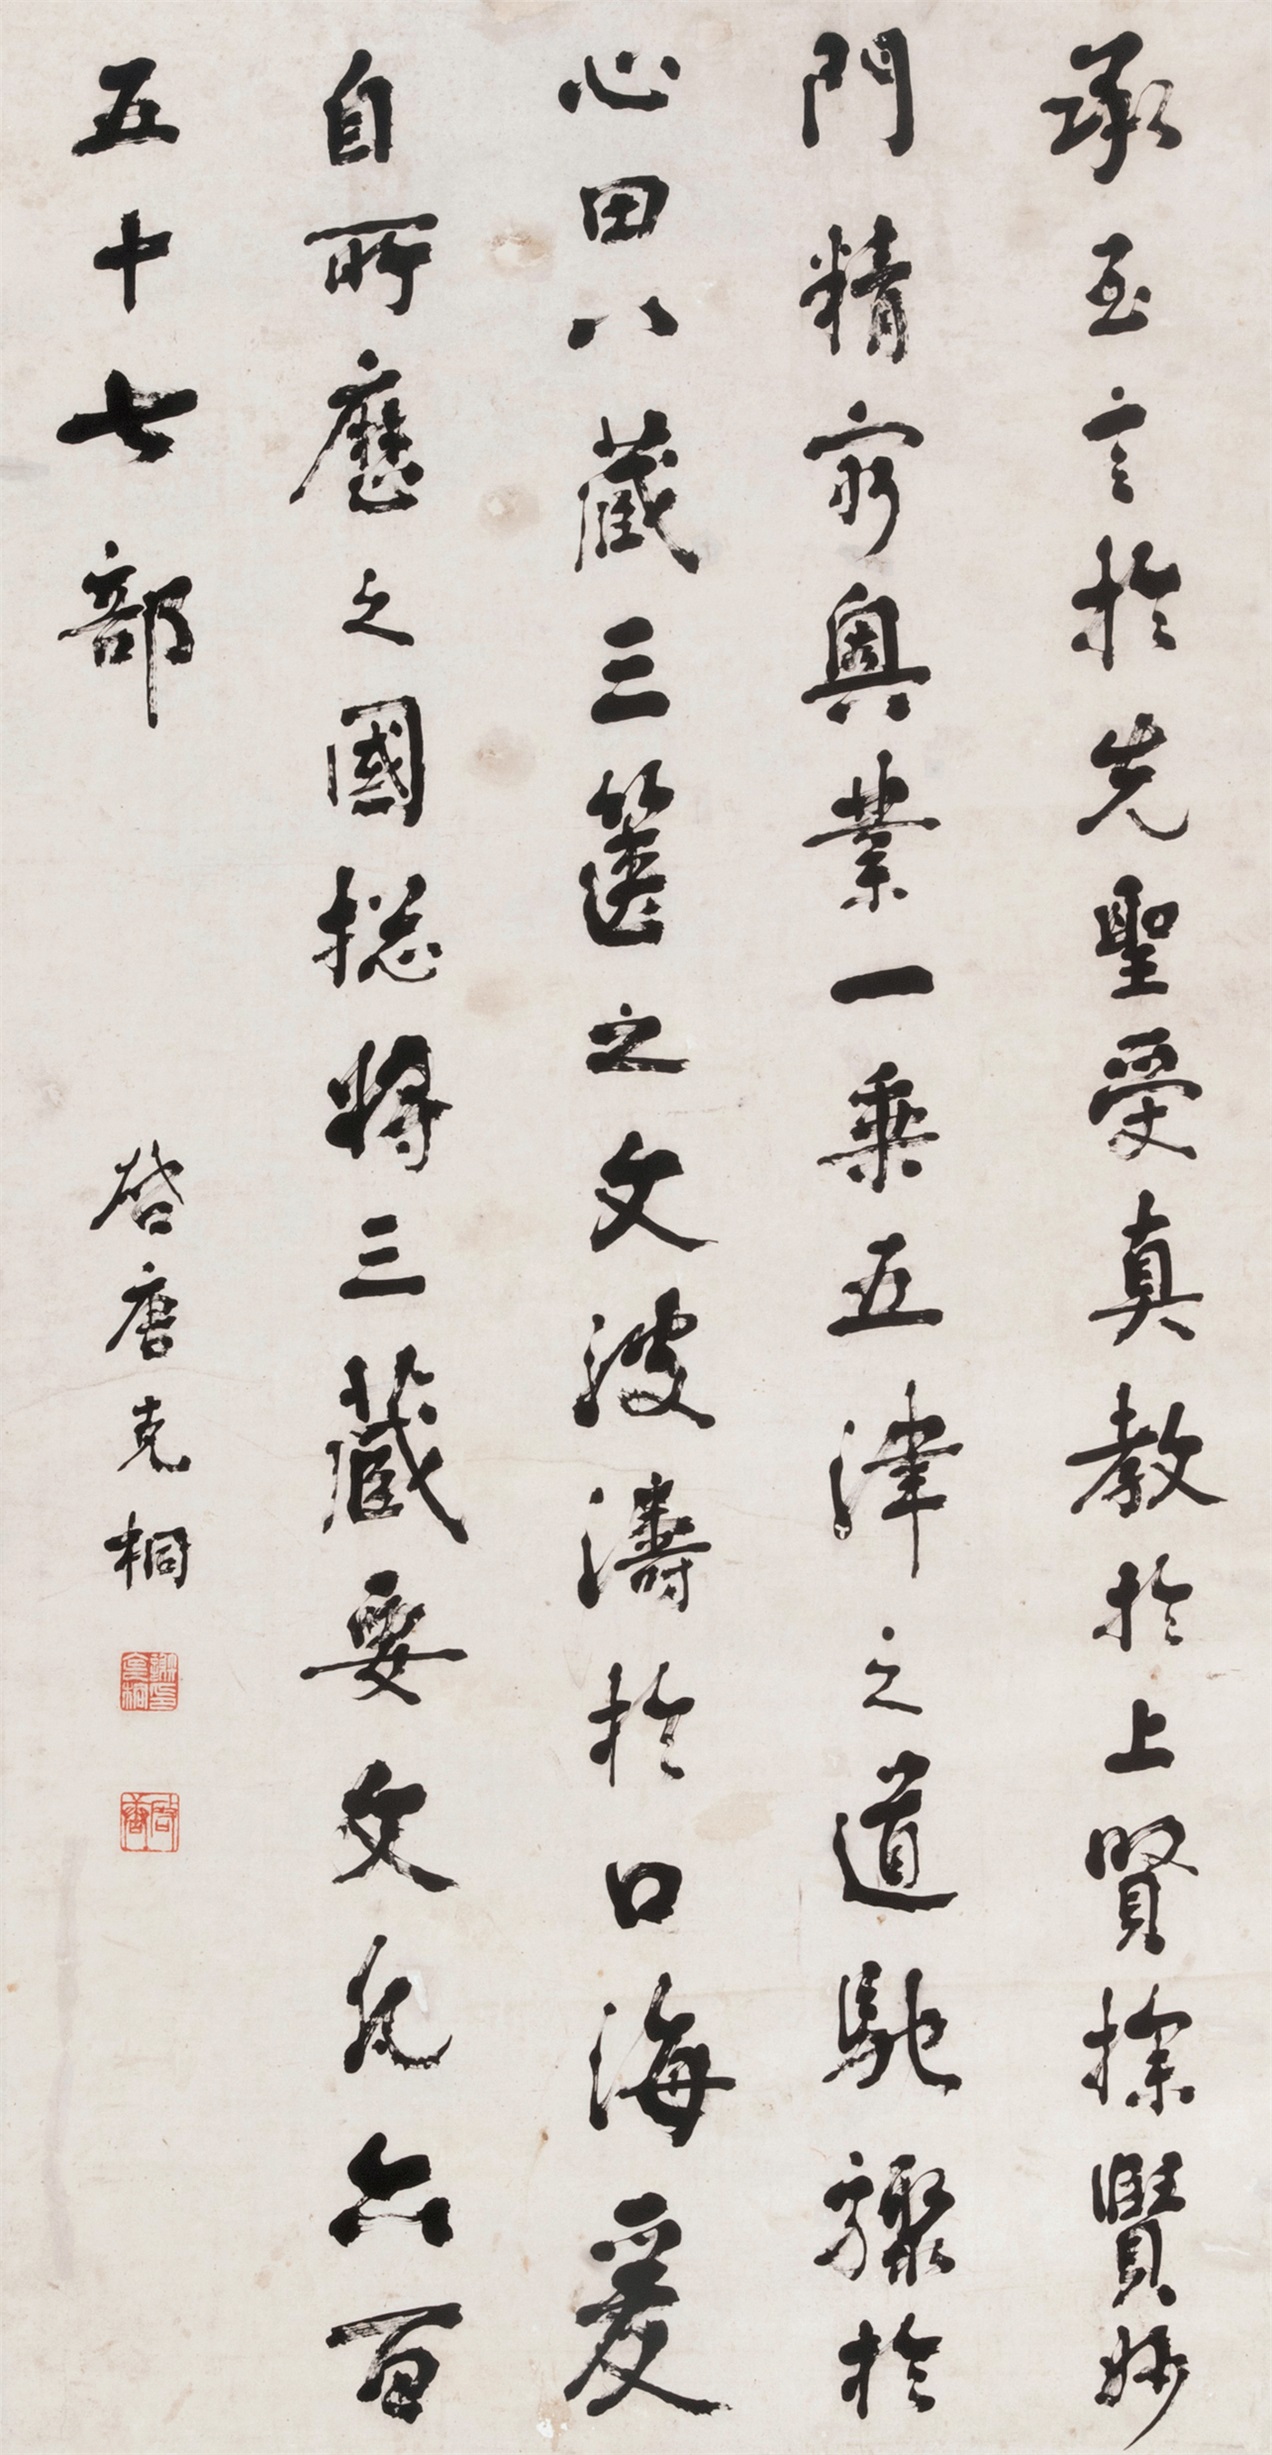 承至言於先聖受真教於上賢探賾妙
門精窮奧業一乘五津之道馳驟於
心田八藏三篋之文波濤於口海爰
自所歷之國揔將三藏要文凡六百
五十七部
啓唐克桐